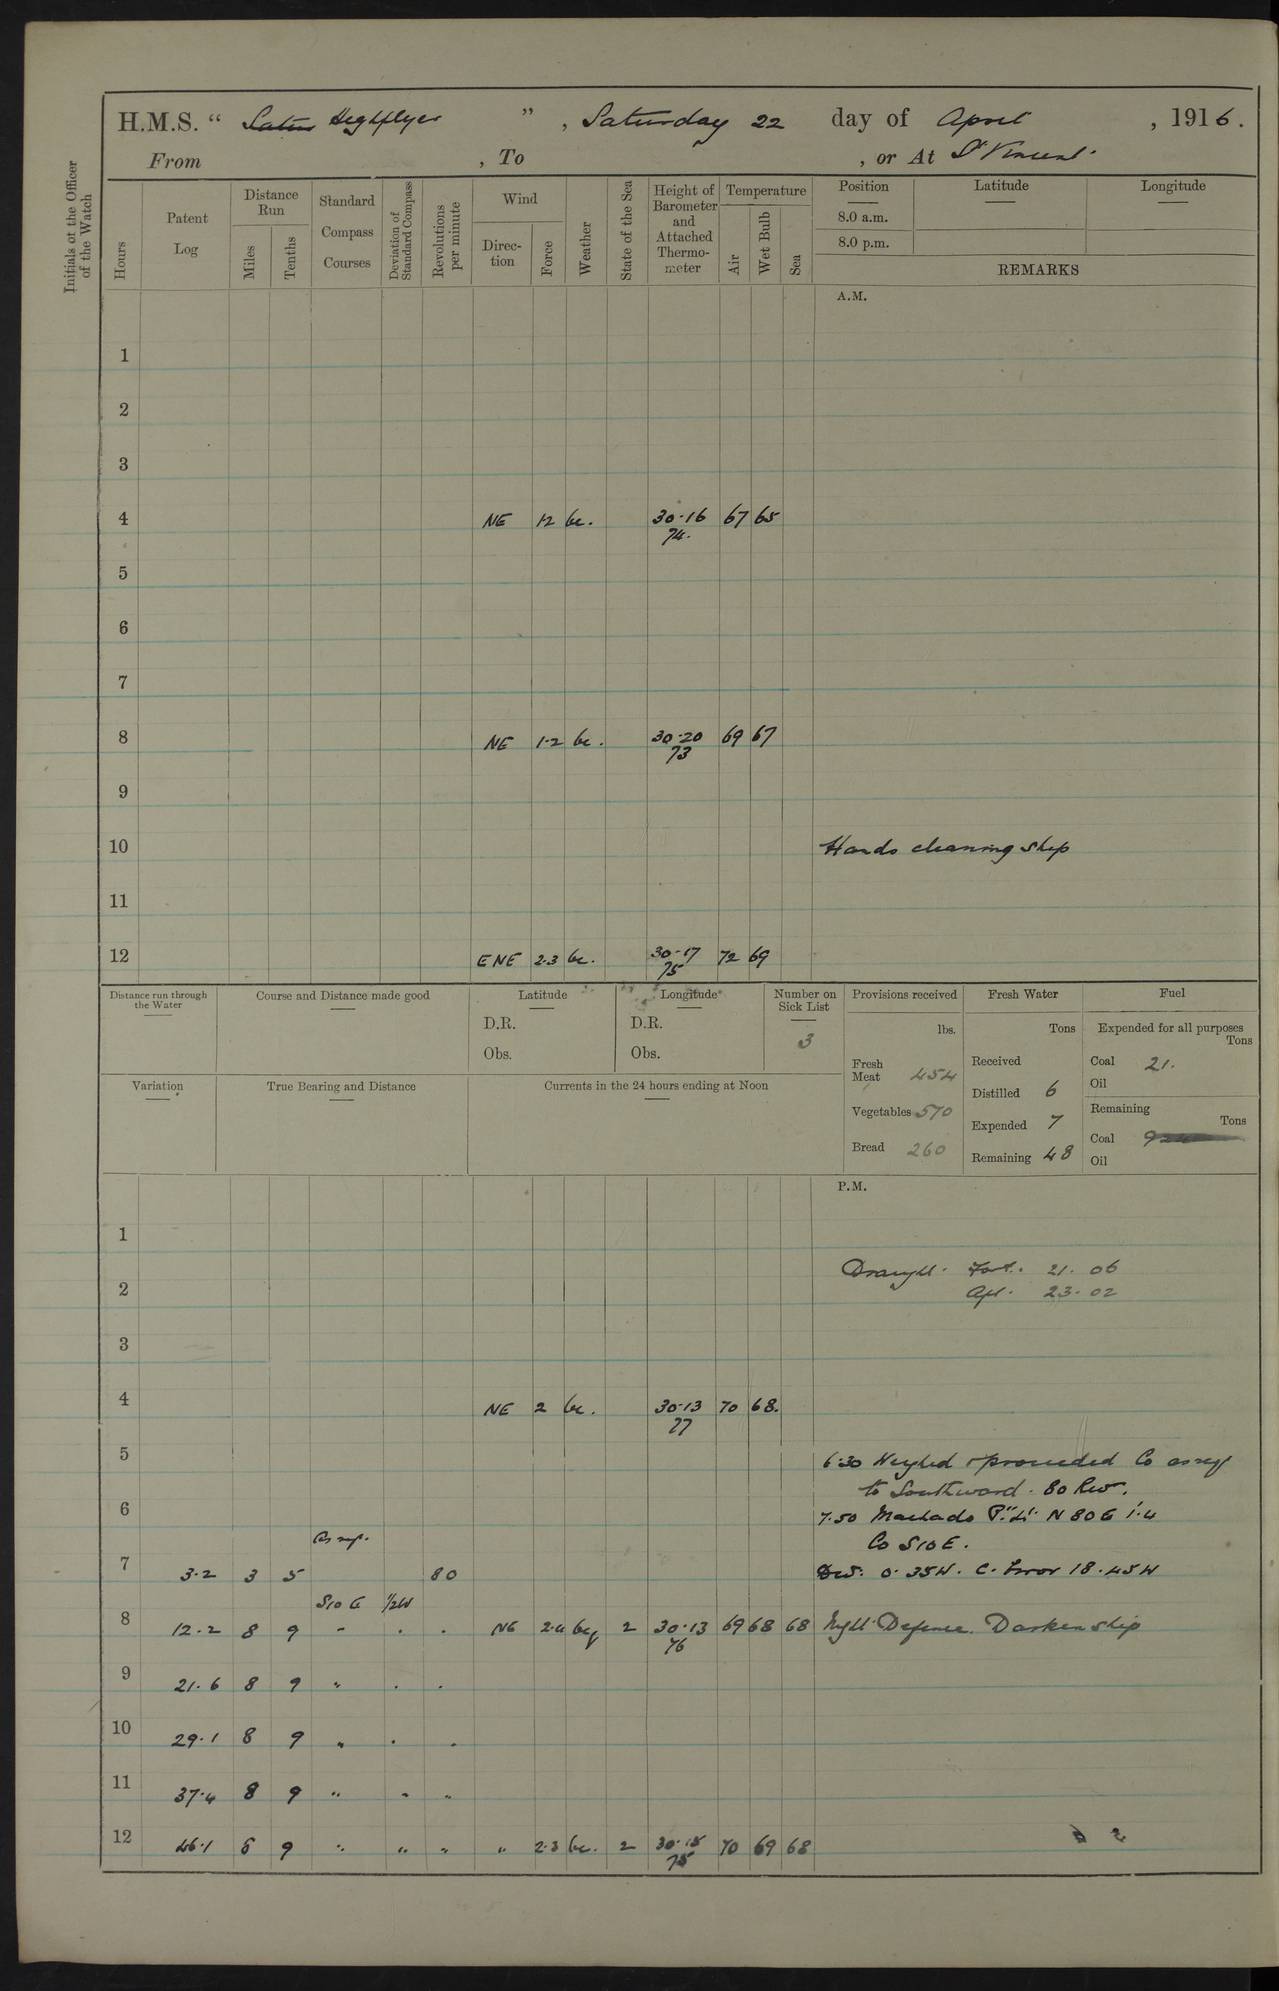 H.M.S. “ Highflyer ”, Saturday 22 day of April, 1916.
From , To , or At St Vincent.
Initials of the Officer of the Watch
Hours
Patent Log
Distance Run
Miles
Tenths
Standard Compass Courses
Deviation of Standard Compass
Revolutions per minute
Wind
Direction
Force
Weather
State of the Sea
Height of Barometer and Attached Thermometer
Temperature
Air
Wet Bulb
Sea
Position
Latitude
Longitude
8.0 a.m.
8.0 p.m.
REMARKS
A.M.
1
2
3
4 NE 1·2 bc. 30·16 67 65
74.
5
6
7
8 NE 1·2 bc. 30·20 69 67
73
9
10 Hands cleaning ship
11
12 ENE 2·3 bc. 30·17 72 69
75
Distance run through the Water
Course and Distance made good
Latitude
D.R.
Obs.
Longitude
D.R.
Obs.
Number on Sick List
3
Provisions received
lbs.
Fresh Meat 454
Vegetables 570
Bread 260
Fresh Water
Tons
Received
Distilled 6
Expended 7
Remaining 48
Fuel
Expended for all purposes
Tons
Coal 21.
Oil
Remaining
Tons
Coal
Oil
Variation
True Bearing and Distance
Currents in the 24 hours ending at Noon
P.M.
1
Draught. For'd. 21·06
2 Aft. 23·02
3
4 NE 2 bc. 30·13 70 68.
77
5 6·30 Weighed & proceeded Co as req
to Southward. 80 Rev.
6 7·50 Machado Pt Lt N 80 E 1·4
As req. Co S10E.
7 3·2 3 5 80 Dev. 0·35W. C. Error 18·45W
S10E ½W
8 12·2 8 9 " . . NE 2·4 30·13 69 68 68 Night Defence. Darken ship
2
76
9 21·6 8 9 " . .
10 29·1 8 9 " . .
11 37·4 8 9 " " "
12 46·1 8 9 " " " " 2·3 bc. 2 30·15 70 69 68
75